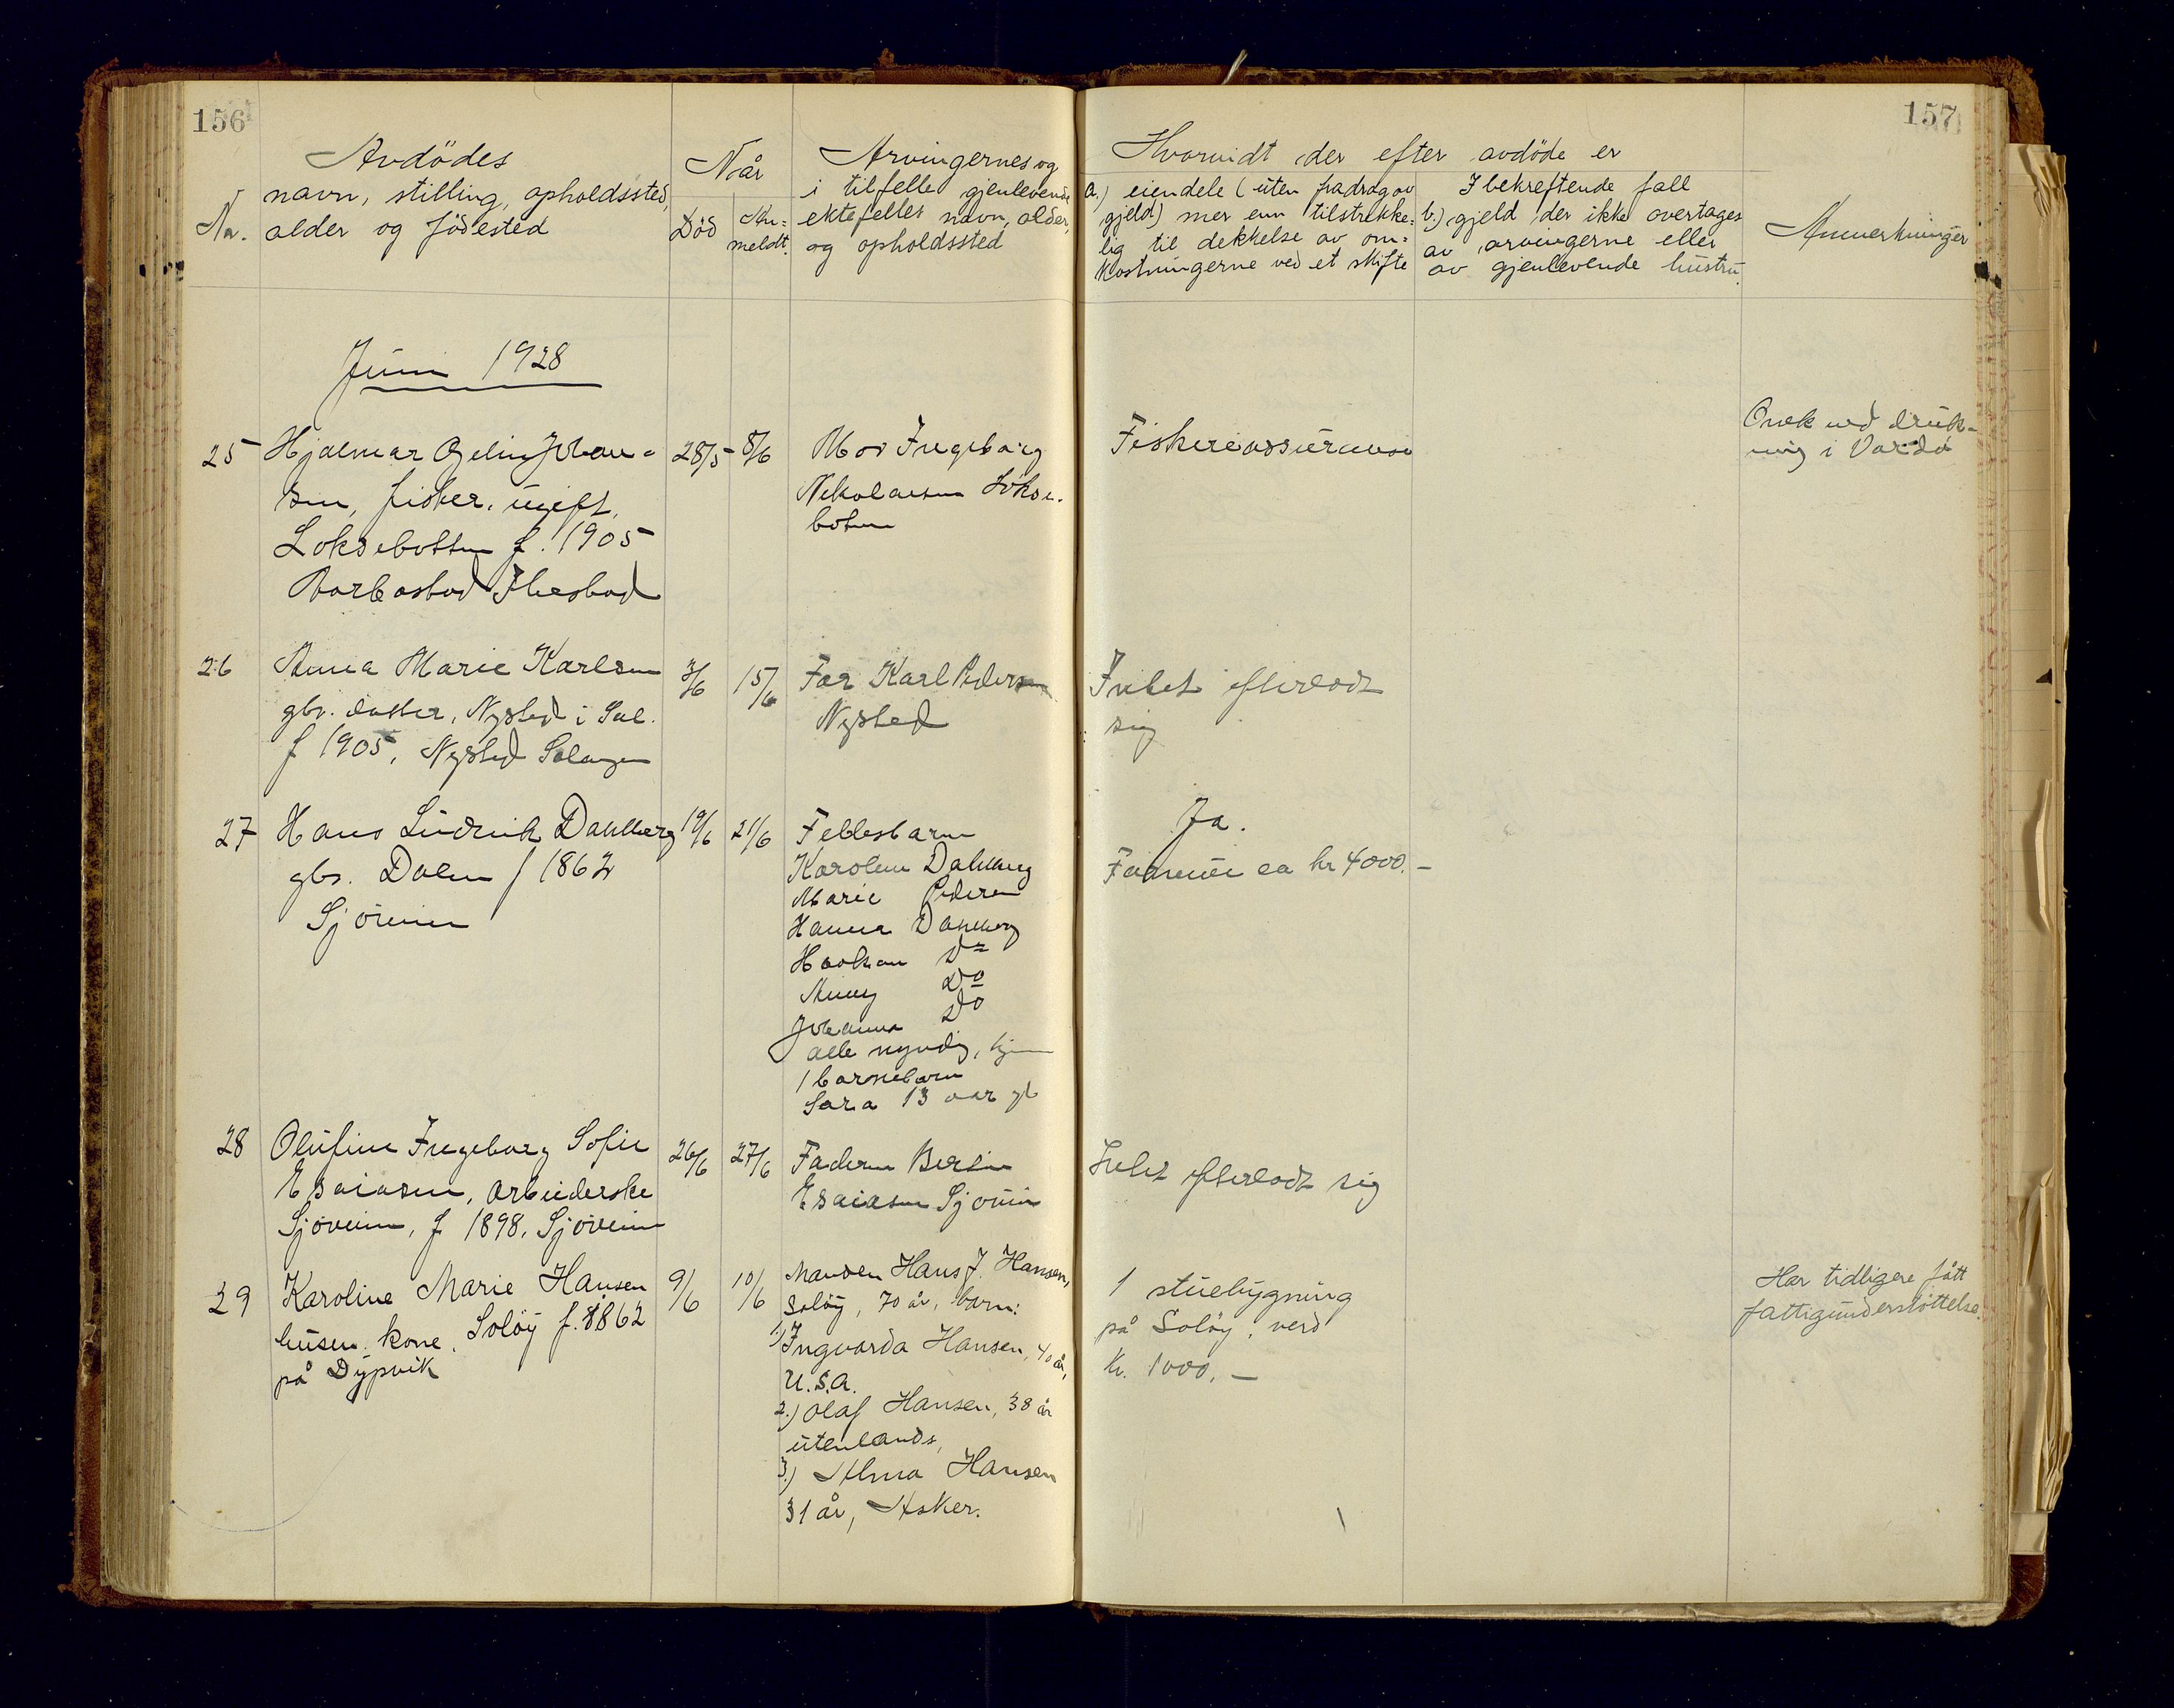 156
157
Avdödes
navn, stilling, opholdssted,
Nr. alder og födested
Når
Död
An-
meldt.
Arvingernes og
i tilfelle gjenlevende
ektefelles navn, alder,
og opholdssted
Hvorvidt der efter avdöde er
a.) eiendele (uten fradrag av
gjeld) mer enn tilstrekke-
lig til dekkelse av om-
kostningerne ved et skifte
I bekreftende fall
b.) gjeld der ikke overtages
av arvingerne eller
av gjenlevende hustru.
Anmerkninger
Juni 1928
25 Hjalmar Johan-
sen, fisker, ugift,
Loksebotten f. 1905
Ibestad
28/5 8/6
Mor Ingeborg
Nikolaisen Lökse-
botn
Fiskerassuranse
Omk ved druk-
ning i Vardö
26 Anna Marie Karlsen
gbr. datter, Nysted i Sal.
f 1905, Nysted Salangen
3/6 15/6
Far Karl Pedersen
Nysted
Intet efterlodt
sig
27 Hans Ludvik Dahlberg
gbr. Dalen f 1862
Sjöveien
19/6 21/6
Fellesbarn
Karolen Dahlberg
Marie Pedersen
Hanna Dahlberg
Haakon Do
Anny Do
Johanna Do
alle myndig,
1 barnebarn
Sara 13 aar gl
Ja.
Formue ca kr 4000.-
28 Olufine Ingeborg Sofie
Esaiasen, arbeiderske
Sjöveien, f 1898, Sjöveien
26/6 27/6
Faderen Bersvin
Esaiasen Sjöveien
Intet efterlodt sig
29 Karoline Marie Hansen
husm. kone, Solöy f. 1862
på Dypvik
9/6 10/6
Manden Hans J. Hansen,
Solöy, 70 år, barn:
1) Ingvarda Hansen, 40 år,
U.S.A.
2.) Olaf Hansen, 38 år
utenlands,
3.) Alma Hansen
31 år, Asker.
1 stuebygning
på Solöy, verd
Kr. 1000.-
Har tidligere fått
fattigunderstöttelse.